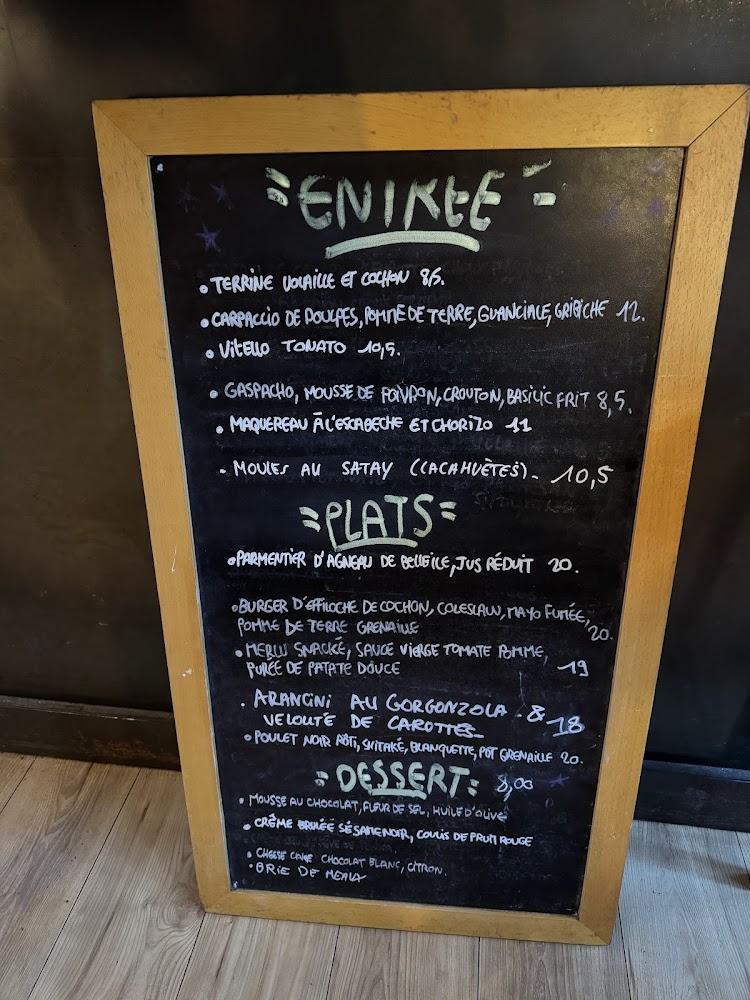 ENTREE
• TERRINE VOLAILLE ET COCHON 8,5.
• CARPACCIO DE POULPES, POMME DE TERRE, GUANCIALE, GRIBICHE 12.
• VITELLO TONATO 10,5.
• GASPACHO, MOUSSE DE POIVRON, CROUTON, BASILIC FRIT 8,5.
• MAQUEREAU À L'ESCABECHE ET CHORIZO 11
• MOULES AU SATAY (CACAHUÈTES) - 10,5
= PLATS =
• PARMENTIER D'AGNEAU DE BELLEILE, JUS RÉDUIT 20.
• BURGER D'EFFILOCHE DE COCHON, COLESLAW, MAYO FUMÉE, 20.
POMME DE TERRE GRENAILLE
• MERLU SNACKÉ, SAUCE VIERGE TOMATE POMME,
PURÉE DE PATATE DOUCE 19
• ARANCINI AU GORGONZOLA - &
VELOUTÉ DE CAROTTES 18
• POULET NOIR RÔTI, SHITAKÉ, BLANQUETTE, POT GRENAILLE 20.
= DESSERT = 8,00
• MOUSSE AU CHOCOLAT, FLEUR DE SEL, HUILE D'OLIVE
• CRÊME BRULÉE SÉSAME NOIR, COULIS DE FRUIT ROUGE
• CHEESE CAKE CHOCOLAT BLANC, CITRON.
• BRIE DE MEAUX